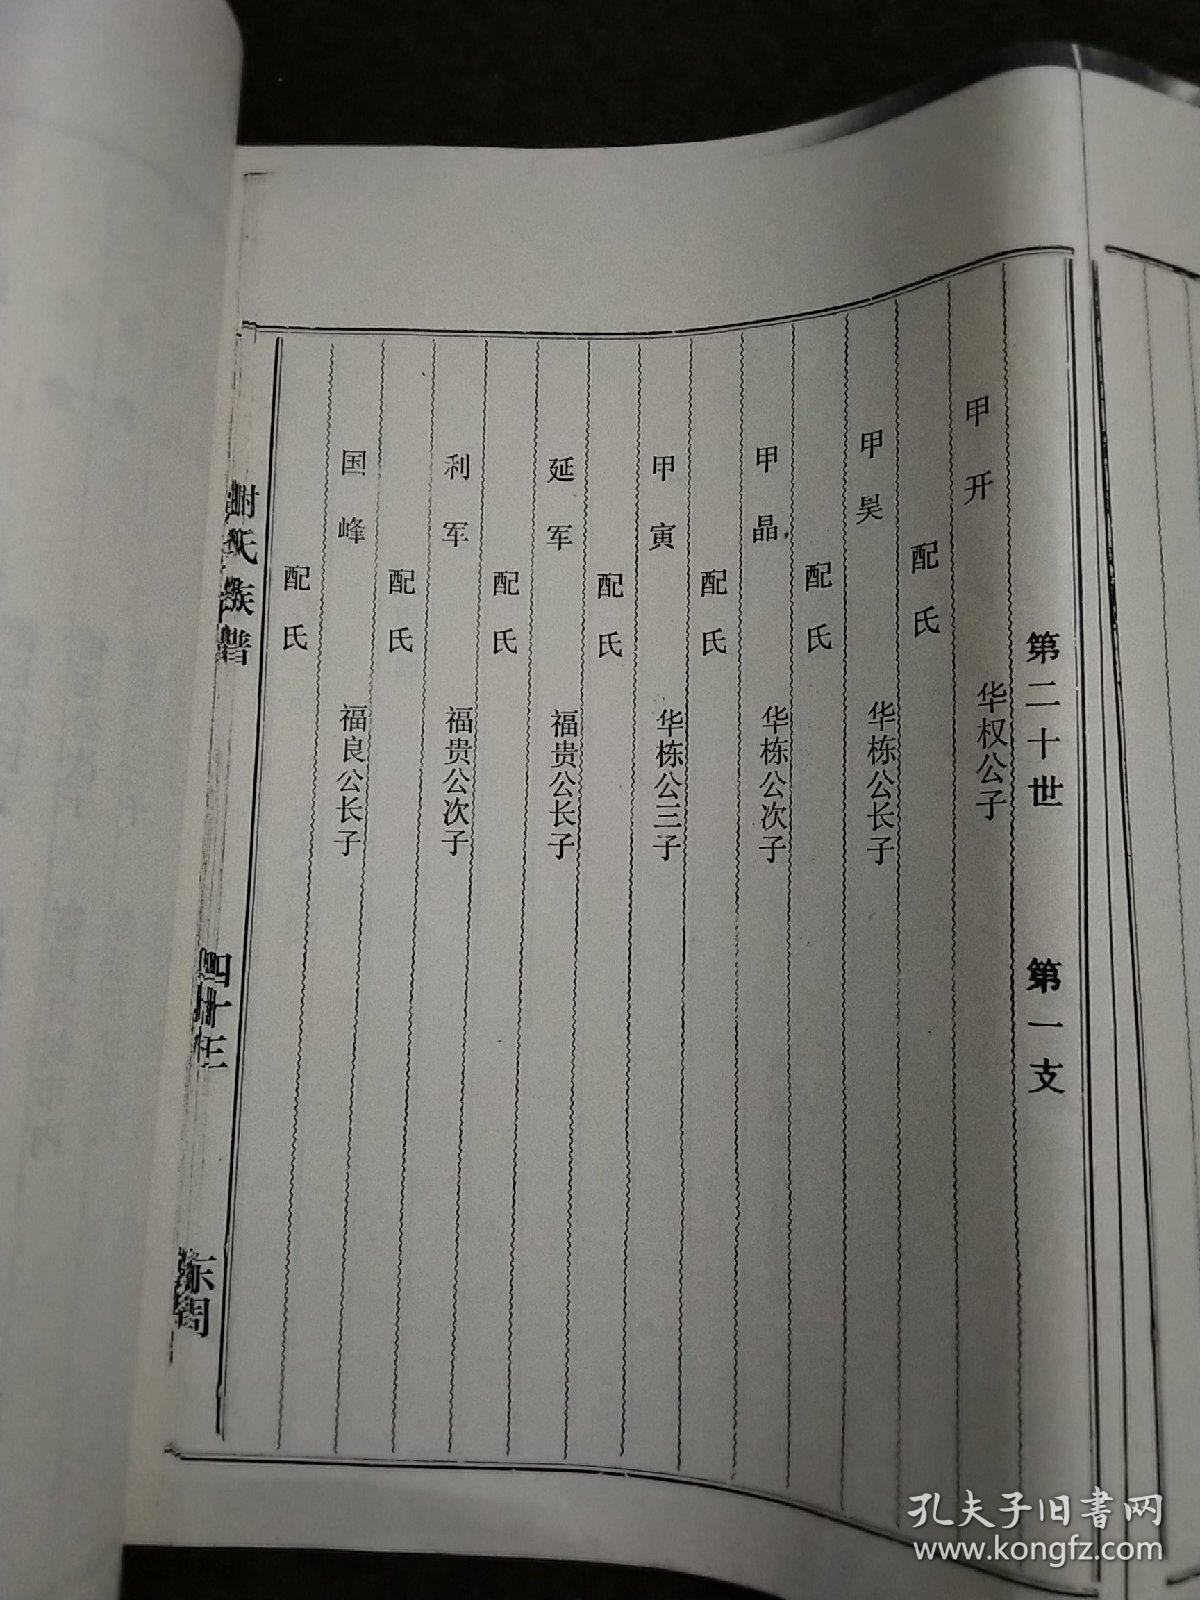 第二十世 第一支
甲开 华权公子
配氏
甲昊 华栋公长子
配氏
甲晶 华栋公次子
配氏
甲寅 华栋公三子
配氏
延军 福贵公长子
配氏
利军 福贵公次子
配氏
国峰 福良公长子
配氏
氏族谱
四十三
东周
孔夫子旧書网
www.kongfz.com